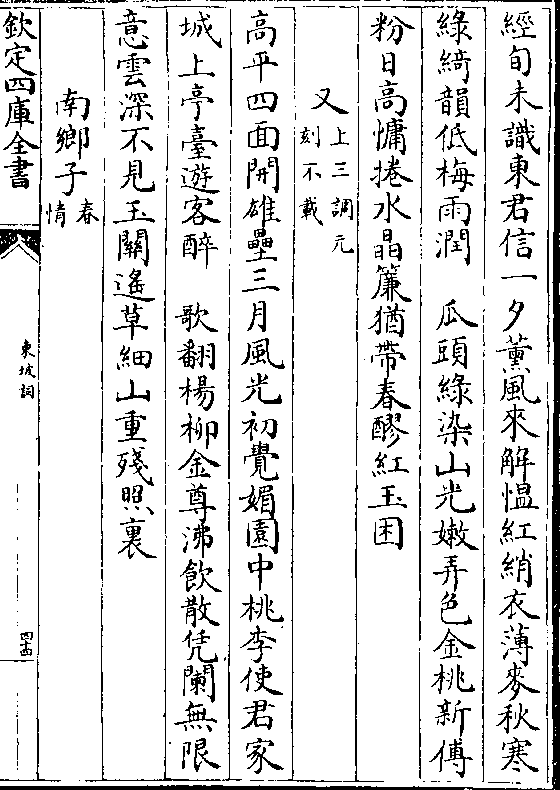 經旬未識東君信一夕薰風來解愠紅綃衣薄麥秋寒
綠綺韻低梅雨潤　瓜頭綠染山光嫩弄色金桃新傅
粉日高慵捲水晶簾猶帶春醪紅玉困
又上三調元刻不載
高平四面開雄壘三月風光初覺媚園中桃李使君家
城上亭臺遊客醉　歌翻楊柳金尊沸飲散凭闌無限
意雲深不見玉關遙草細山重殘照裏
南鄉子春情
欽定四庫全書
東坡詞
四十四